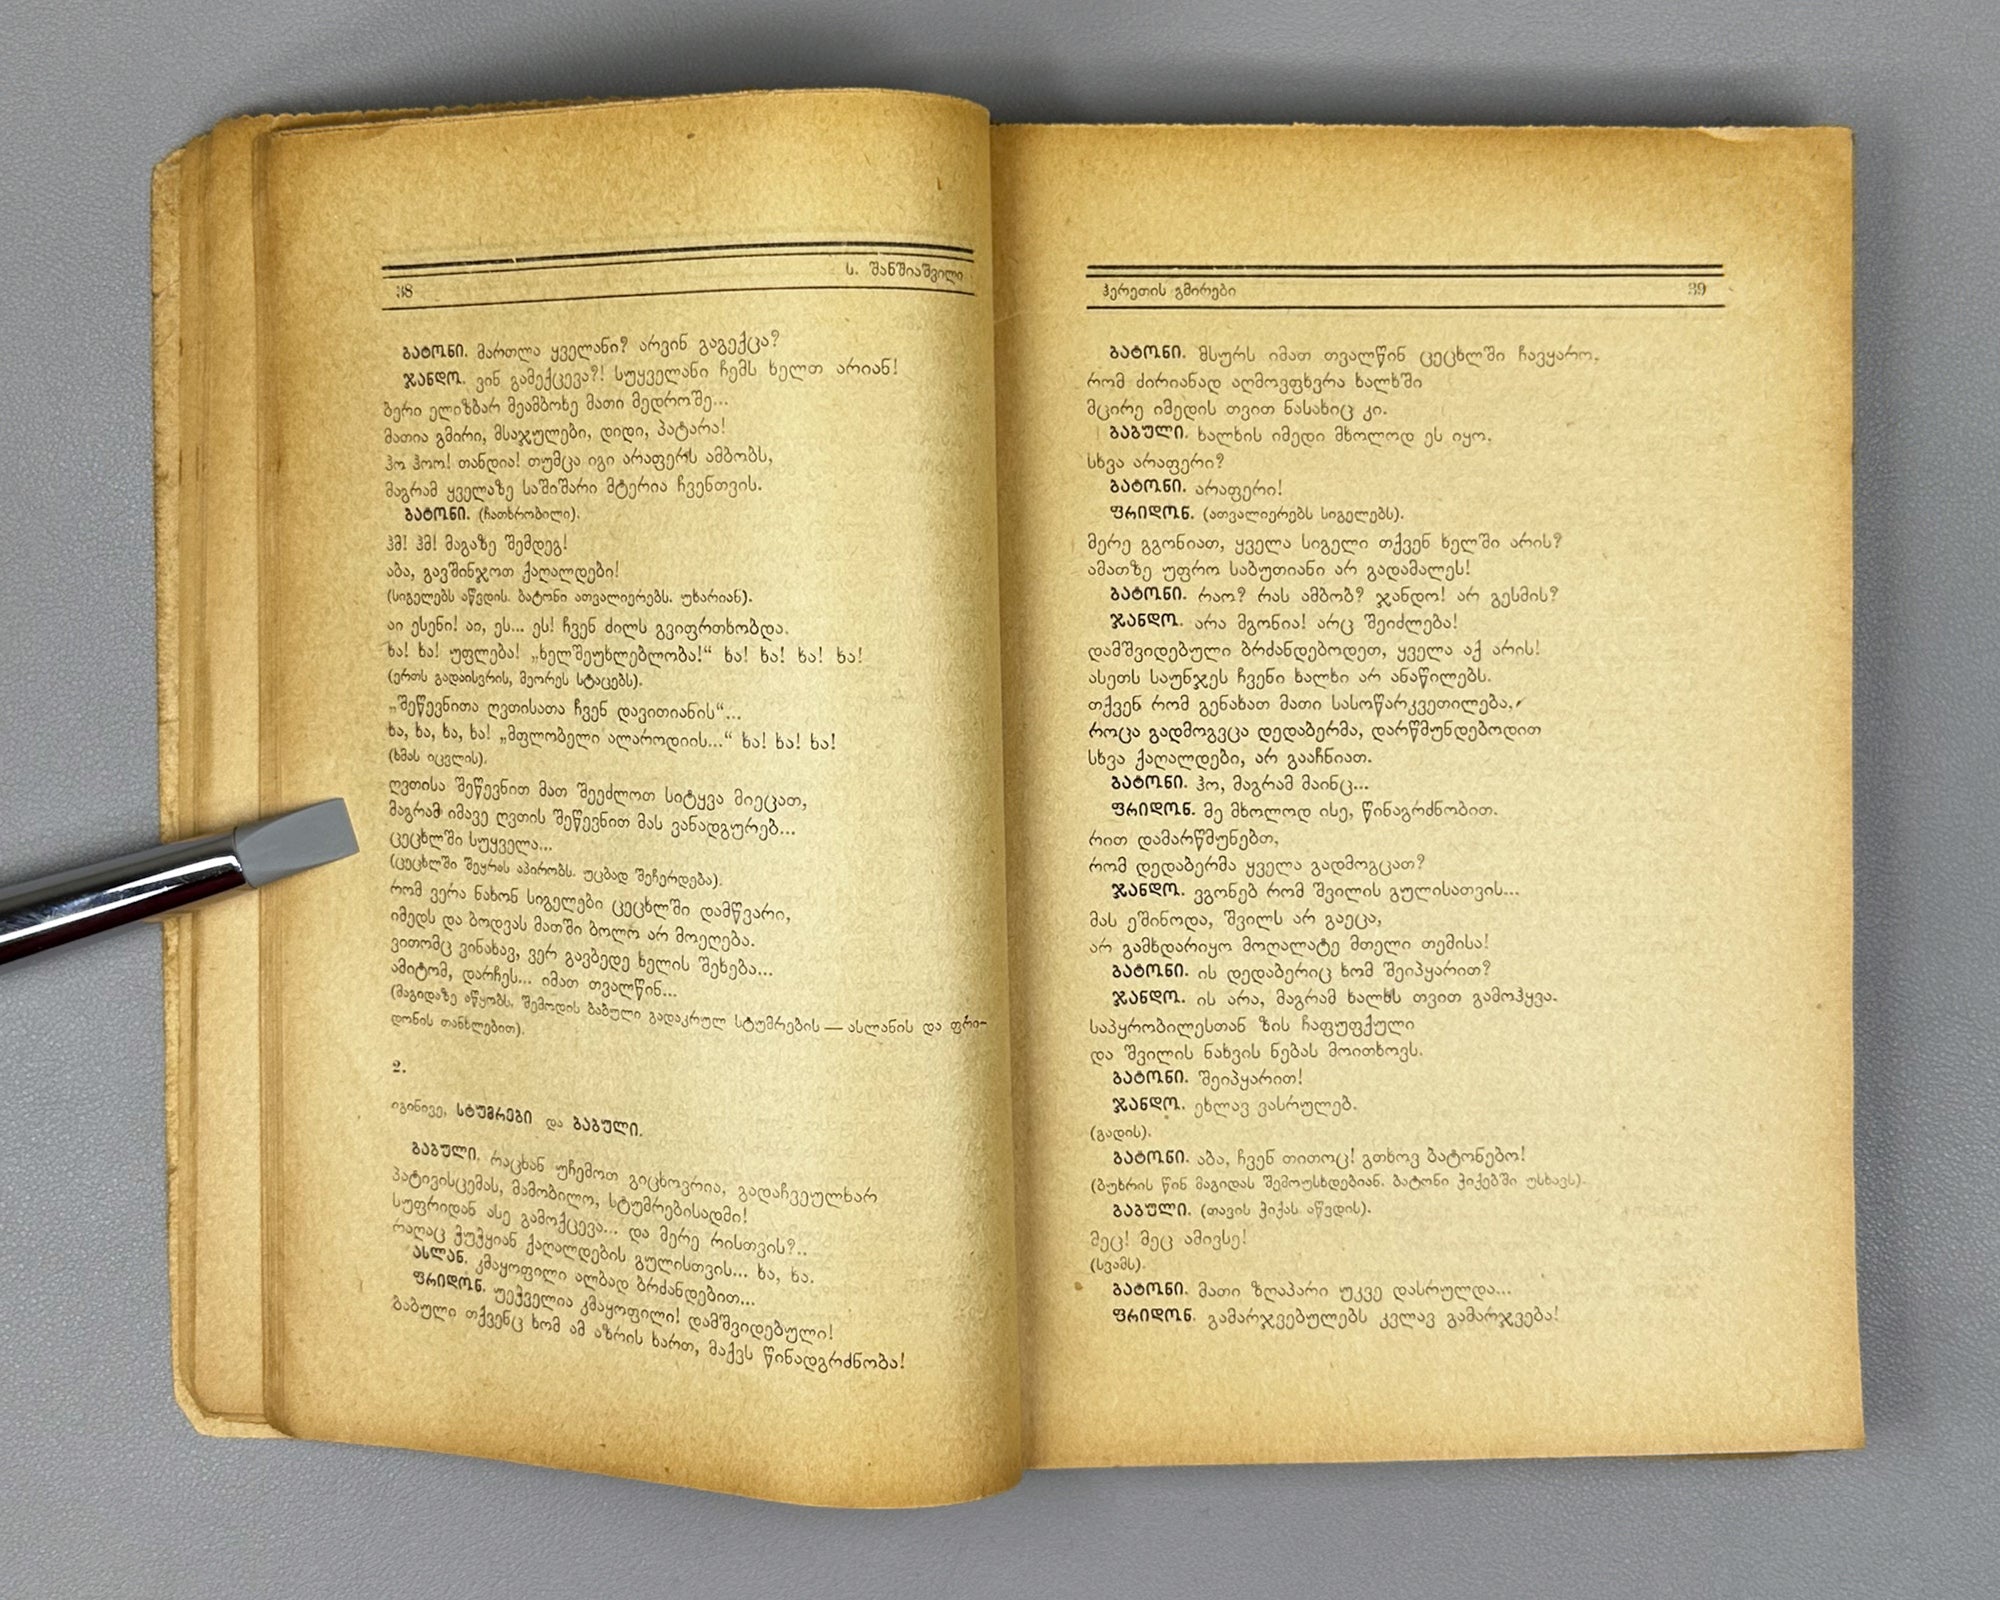 38
ს. შანშიაშვილი
ბატონი. მართლა ყველანი? არვინ გაგექცა?
ჯანდო. ვინ გამექცევა?! სუყველანი ჩემს ხელთ არიან!
ბერი ელიზბარ მეამბოხე მათი მედროშე...
მათია გმირი, მსაჯულები, დიდი, პატარა!
ჰო ჰოო! თანდია! თუმცა იგი არაფერს ამბობს,
მაგრამ ყველაზე საშიშარი მტერია ჩვენთვის.
ბატონი. (ჩათხრობილი).
ჰმ! ჰმ! მაგაზე შემდეგ!
აბა, გავშინჯოთ ქაღალდები!
(სიგელებს აწვდის. ბატონი ათვალიერებს. უხარიან).
აი ესენი! აი, ეს... ეს! ჩვენ ძილს გვიფრთხობდა.
ხა! ხა! უფლება! „ხელშეუხლებლობა!“ ხა! ხა! ხა! ხა!
(ერთს გადაისვრის, მეორეს სტაცებს).
„შეწევნითა ღვთისათა ჩვენ დავითიანის“...
ხა, ხა, ხა, ხა! „მფლობელი ალაროდიის...“ ხა! ხა! ხა!
(ხმას იცვლის).
ღვთისა შეწევნით მათ შეეძლოთ სიტყვა მიეცათ,
მაგრამ იმავე ღვთის შეწევნით მას ვანადგურებ...
ცეცხლში სუყველა...
(ცეცხლში შეყრას აპირობს. უცბად შეჩერდება).
რომ ვერა ნახონ სიგელები ცეცხლში დამწვარი,
იმედს და ბოდვას მათში ბოლო არ მოეღება.
ვითომც ვინახავ, ვერ გავბედე ხელის შეხება...
ამიტომ, დარჩეს... იმათ თვალწინ...
(მაგიდაზე აწყობს. შემოდის ბაბული გადაკრულ სტუმრების — ასლანის და ფრი-
დონის თანხლებით).
2.
იგინივე, სტუმრები და ბაბული.
ბაბული. რაცხან უჩემოთ გიცხოვრია, გადაჩვეულხარ
პატივისცემას, მამობილო, სტუმრებისადმი!
სუფრიდან ასე გამოქცევა... და მერე რისთვის?..
რაღაც ჭუჭყიან ქაღალდების გულისთვის... ხა, ხა.
ასლან. კმაყოფილი ალბად ბრძანდებით...
ფრიდონ. უეჭველია კმაყოფილი! დამშვიდებული!
ბაბული თქვენც ხომ ამ აზრის ხართ, მაქვს წინადგრძნობა!
ჰერეთის გმირები
39
ბატონი. მსურს იმათ თვალწინ ცეცხლში ჩავყარო,
რომ ძირიანად აღმოვფხვრა ხალხში
მცირე იმედის თვით ნასახიც კი.
ბაბული. ხალხის იმედი მხოლოდ ეს იყო,
სხვა არაფერი?
ბატონი. არაფერი!
ფრიდონ. (ათვალიერებს სიგელებს).
მერე გგონიათ, ყველა სიგელი თქვენ ხელში არის?
ამათზე უფრო საბუთიანი არ გადამალეს!
ბატონი. რაო? რას ამბობ? ჯანდო! არ გესმის?
ჯანდო. არა მგონია! არც შეიძლება!
დამშვიდებული ბრძანდებოდეთ, ყველა აქ არის!
ასეთს საუნჯეს ჩვენი ხალხი არ ანაწილებს.
თქვენ რომ გენახათ მათი სასოწარკვეთილება,
როცა გადმოგვცა დედაბერმა, დარწმუნდებოდით
სხვა ქაღალდები, არ გააჩნიათ.
ბატონი. ჰო, მაგრამ მაინც...
ფრიდონ. მე მხოლოდ ისე, წინაგრძნობით.
რით დამარწმუნებთ,
რომ დედაბერმა ყველა გადმოგცათ?
ჯანდო. ვგონებ რომ შვილის გულისათვის...
მას ეშინოდა, შვილს არ გაეცა,
არ გამხდარიყო მოღალატე მთელი თემისა!
ბატონი. ის დედაბერიც ხომ შეიპყარით?
ჯანდო. ის არა, მაგრამ ხალხს თვით გამოჰყვა.
საპყრობილესთან ზის ჩაფუფქული
და შვილის ნახვის ნებას მოითხოვს.
ბატონი. შეიპყარით!
ჯანდო. ეხლავ ვასრულებ.
(გადის).
ბატონი. აბა, ჩვენ თითოც! გთხოვ ბატონებო!
(ბუხრის წინ მაგიდას შემოუსხდებიან. ბატონი ჭიქებში უსხავს).
ბაბული. (თავის ჭიქას აწვდის).
მეც! მეც ამივსე!
(სვამს).
ბატონი. მათი ზღაპარი უკვე დასრულდა...
ფრიდონ. გამარჯვებულებს კვლავ გამარჯვება!